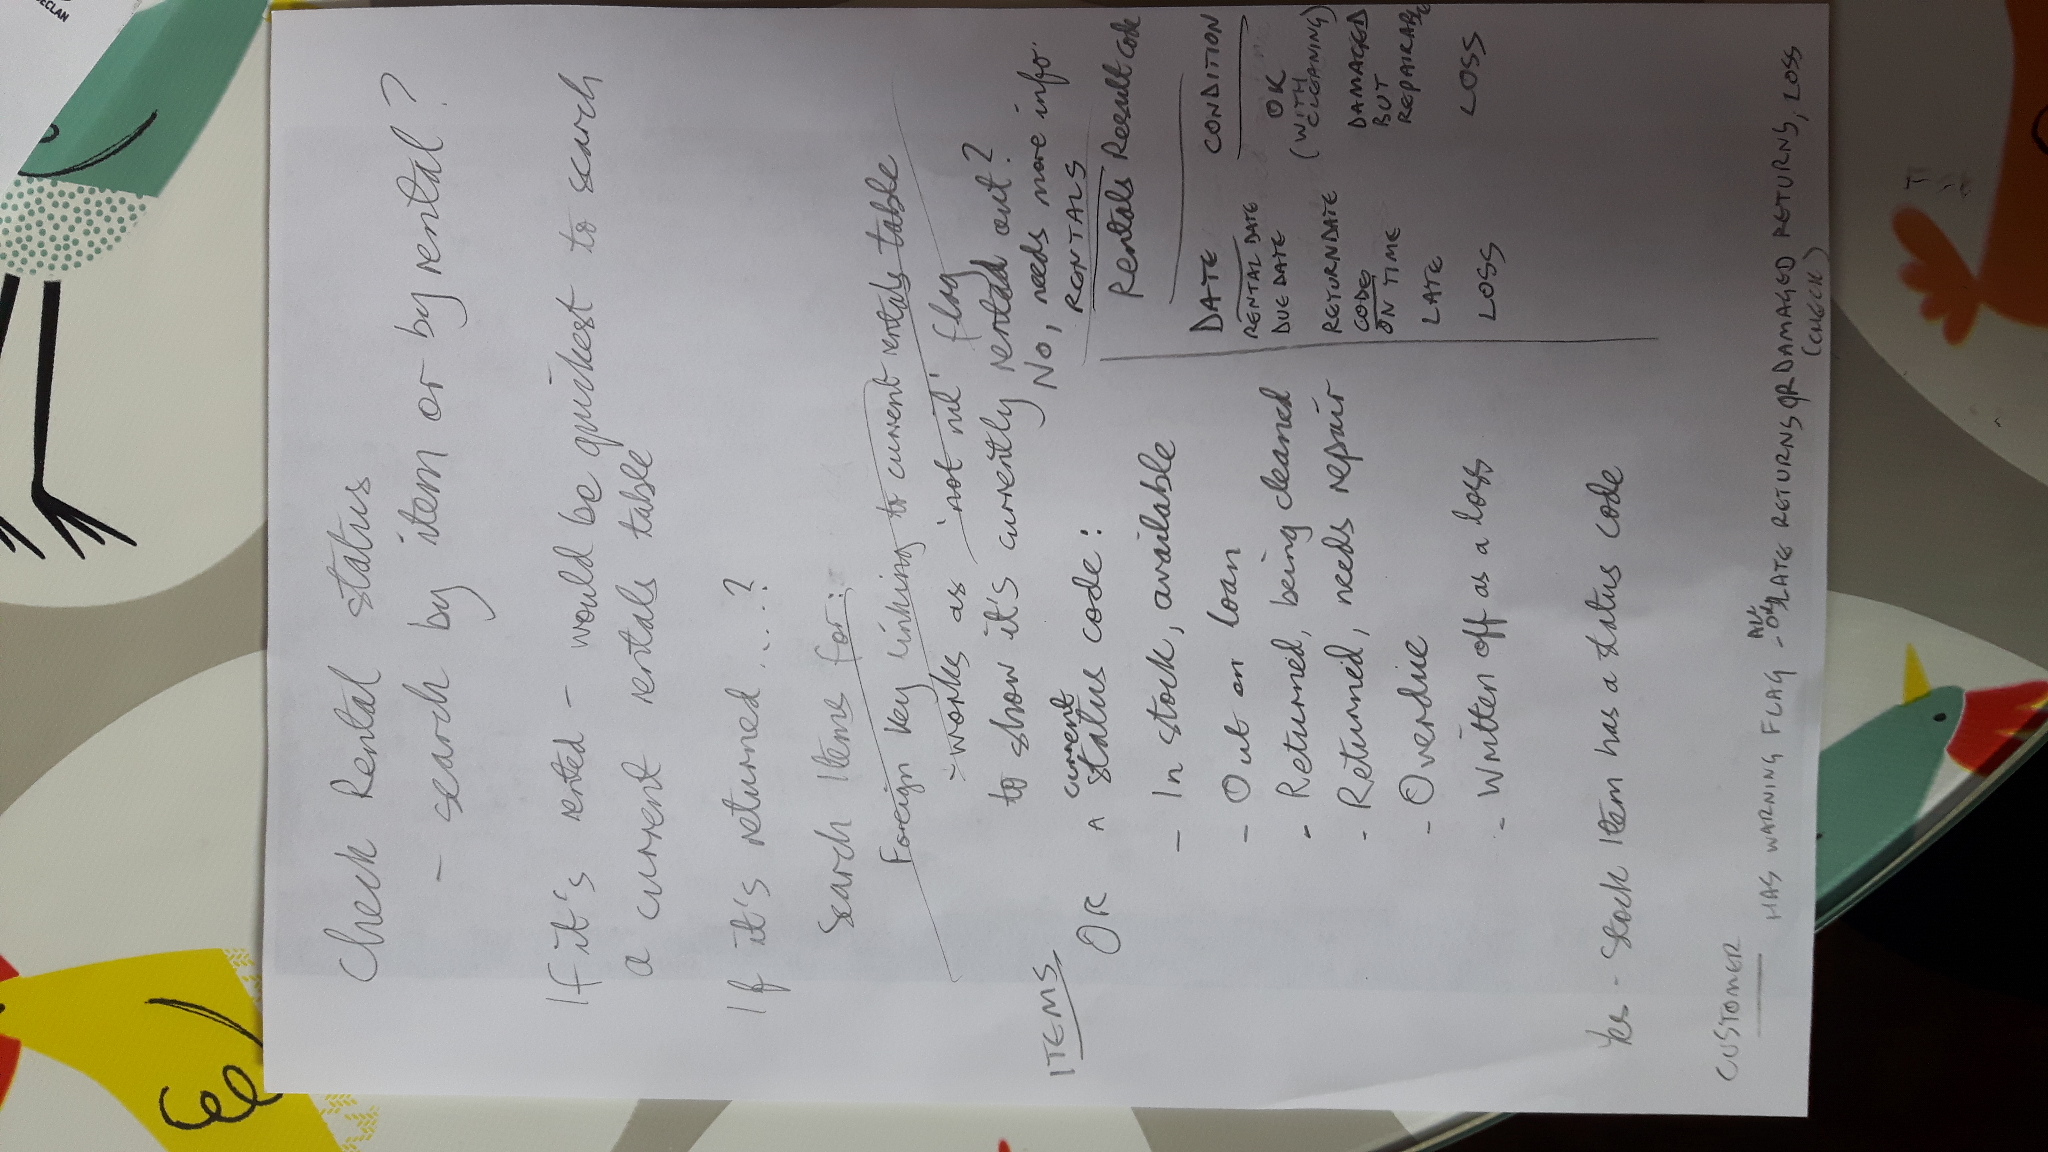 Check Rental status
- search by item or by rental?
If it's rented - would be quickest to search
a current rentals table
If it's returned ....?
Search Items for:
Foreign key linking to current rentals table
- works as 'not nil' flag
to show it's currently rented out?
No, needs more info.
ITEMS
OR A current status code:
- In stock, available
- Out on loan
- Returned, being cleaned
- Returned, needs repair
- Overdue
- Written off as a loss
RENTALS
Rentals Result code
DATE
RENTAL DATE
DUE DATE
RETURN DATE
CODE
ON TIME
LATE
LOSS
CONDITION
OK
(WITH
CLEANING)
DAMAGED
BUT
REPAIRABLE
LOSS
Yes - Stock Item has a status code
CUSTOMER
HAS WARNING FLAG - ALL OK, LATE RETURNS OR DAMAGED RETURNS, LOSS
(CHECK)